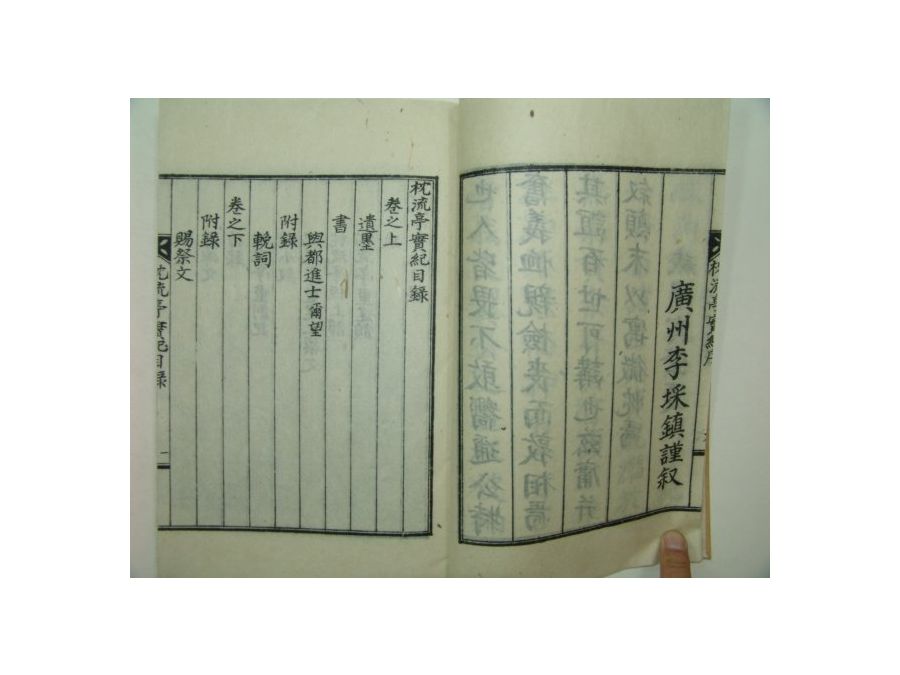 廣州李埰鎮謹叙
枕流亭實紀目錄
卷之上
遺墨
書
與都進士爾望
附錄
輓詞
卷之下
附錄
賜祭文
枕流亭實紀目錄
一
枕流亭實紀序